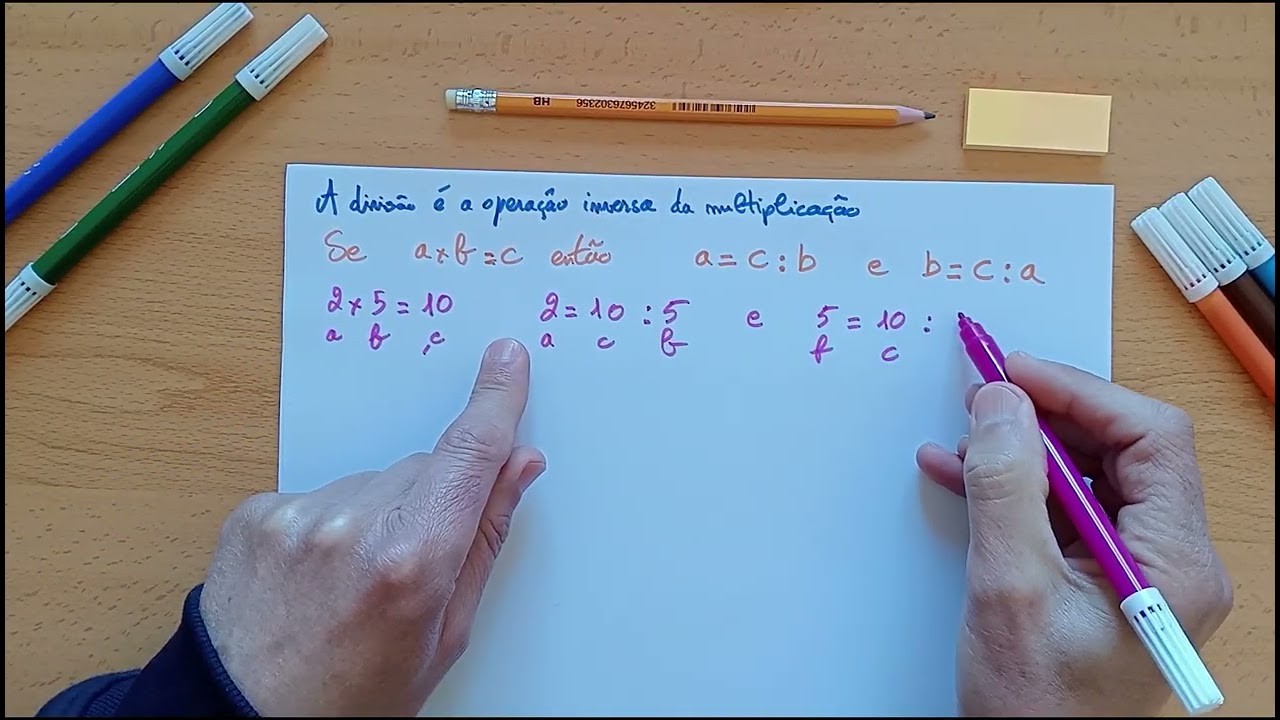 HB 3245676302356
A divisão é a operação inversa da multiplicação
Se a×b=c então a=c:b e b=c:a
2×5=10 2=10:5 e 5=10:
a b c a c b b c